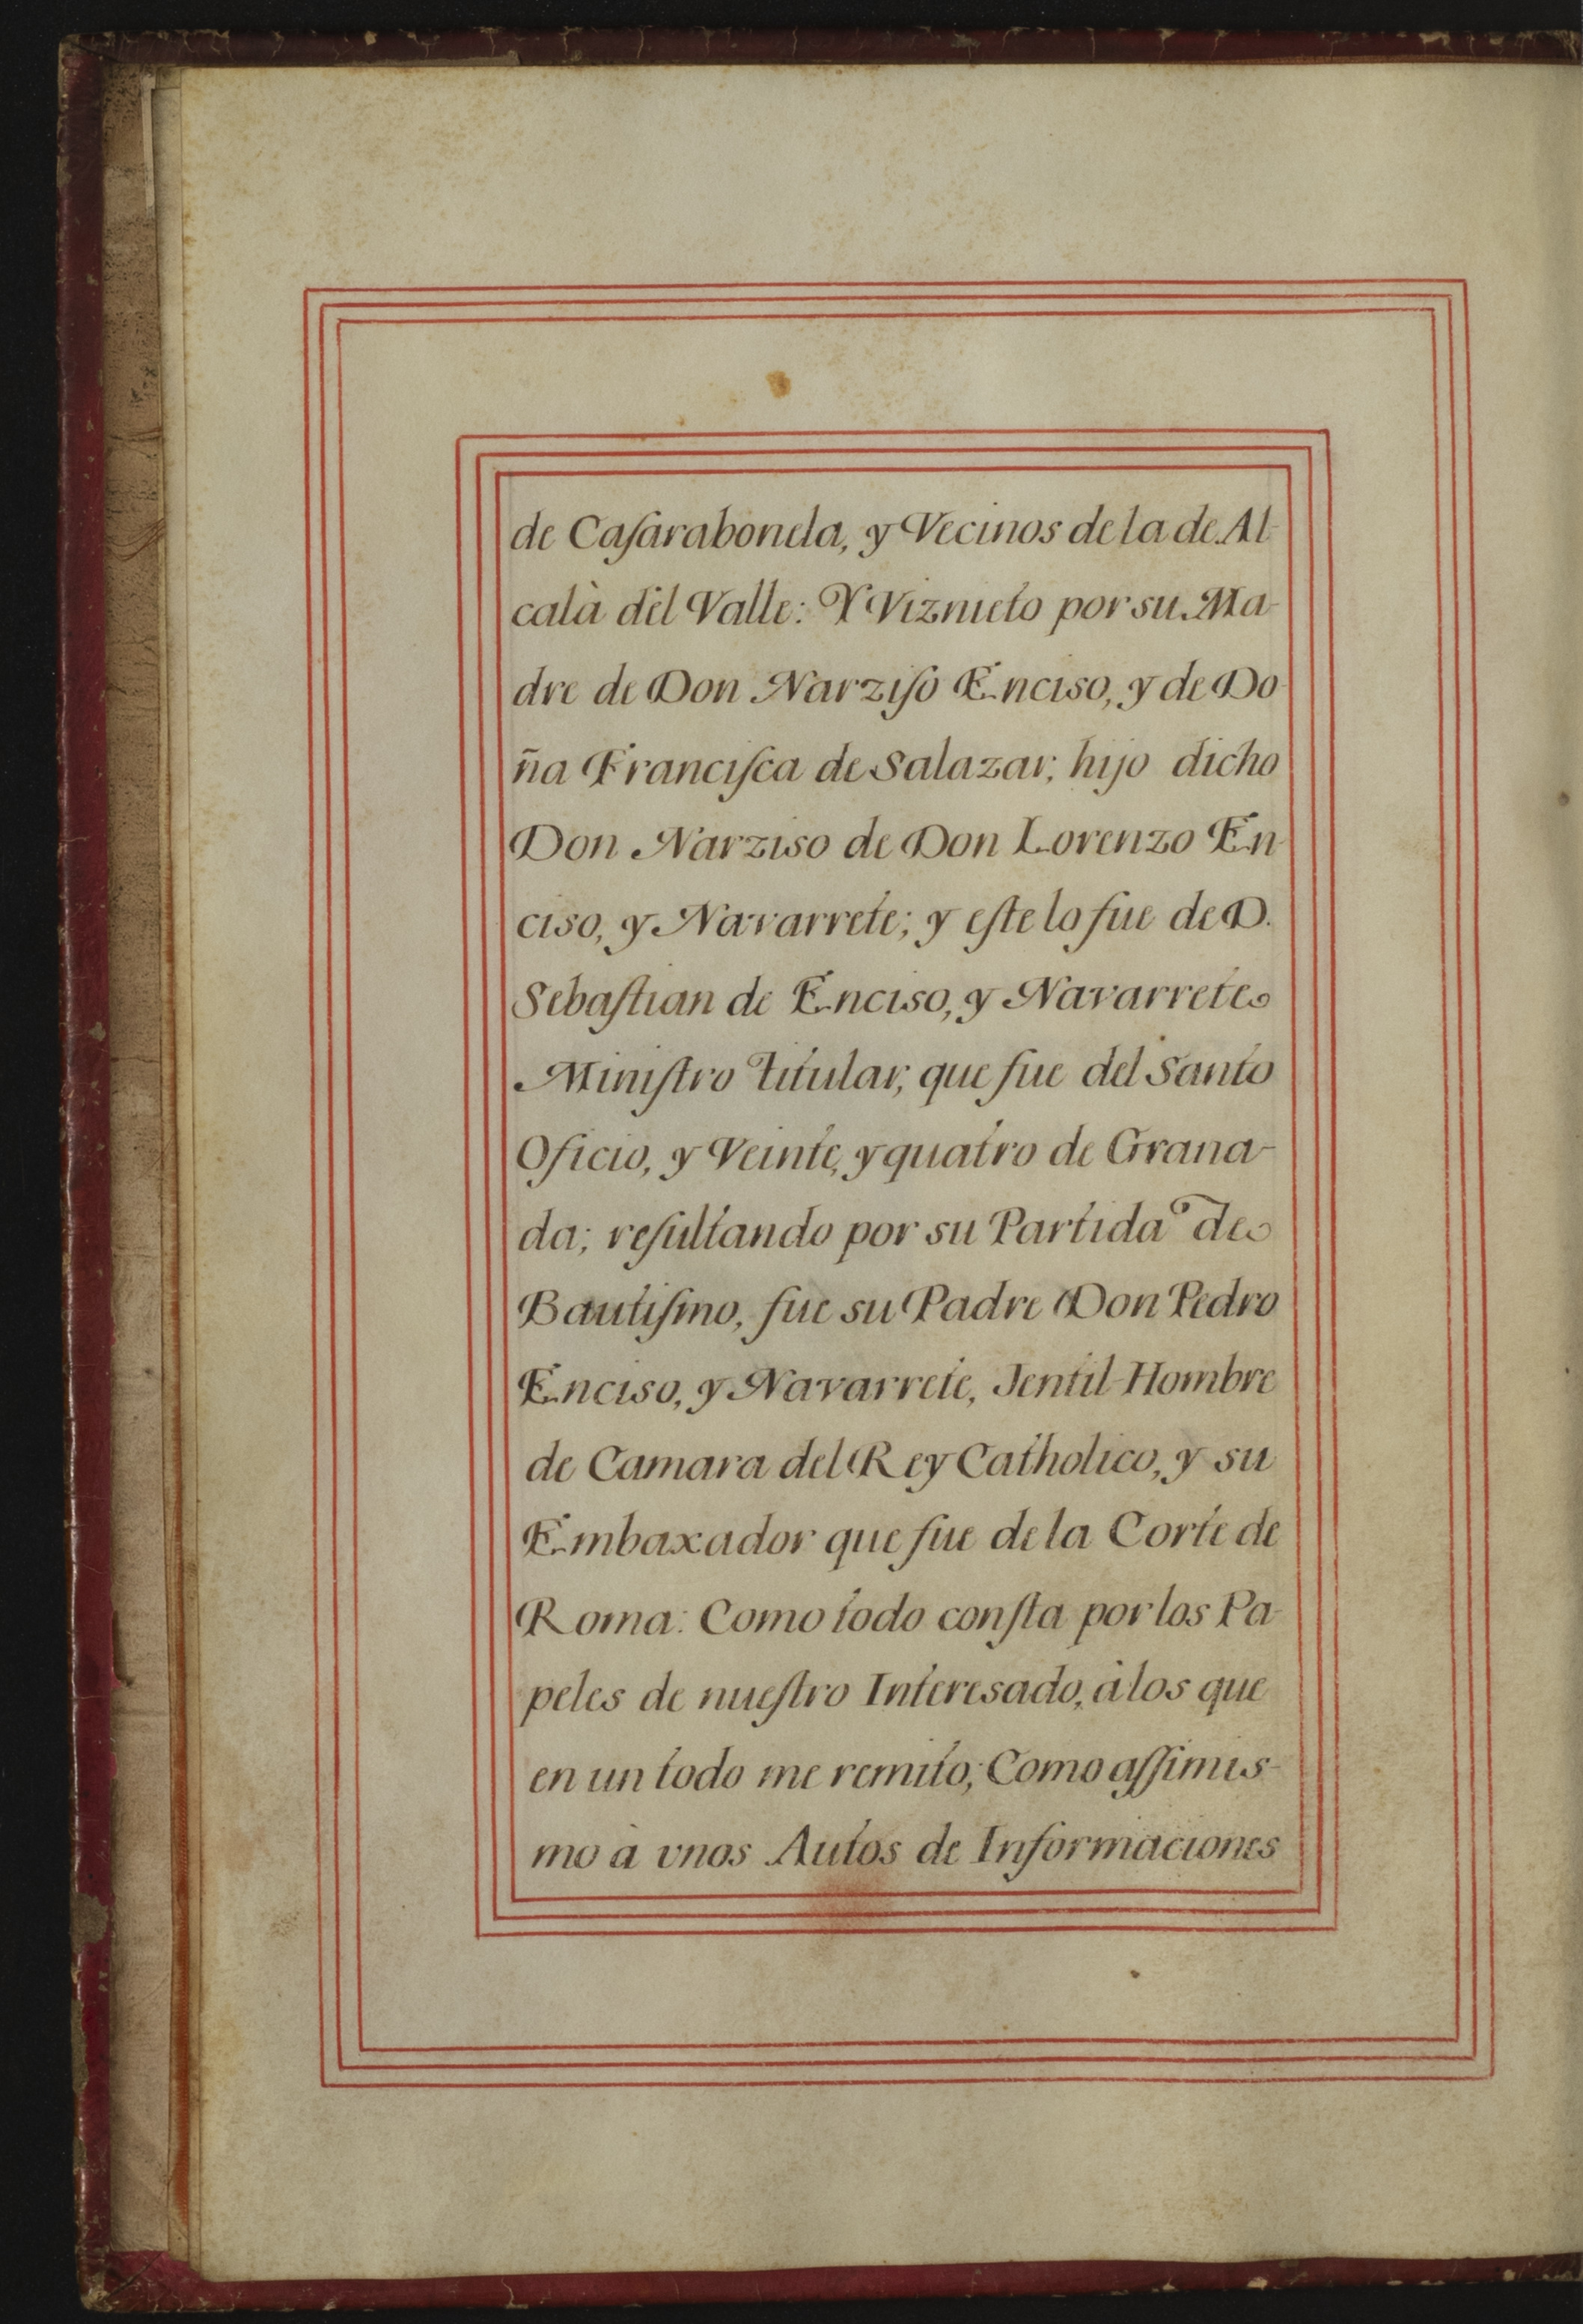 de Caſarabonela, y Vecinos de la de Al-
calà del Valle: Y Viznieto por su Ma-
dre de Don Narziſo Enciso, y de Do-
ña Franciſca de Salazar; hijo dicho
Don Narziso de Don Lorenzo En-
ciso, y Navarrete; y eſte lo fue de D.
Sebaſtian de Enciso, y Navarrete
Miniſtro titular, que fue del Santo
Oficio, y Veinte, y quatro de Grana-
da; reſultando por su Partida de
Bautiſmo, fue su Padre Don Pedro
Enciso, y Navarrete, Jentil-Hombre
de Camara del Rey Catholico, y su
Embaxador que fue de la Corte de
Roma: Como todo conſta por los Pa-
peles de nueſtro Interesado, à los que
en un todo me remito; Como aſſimis-
mo à vnos Autos de Informaciones